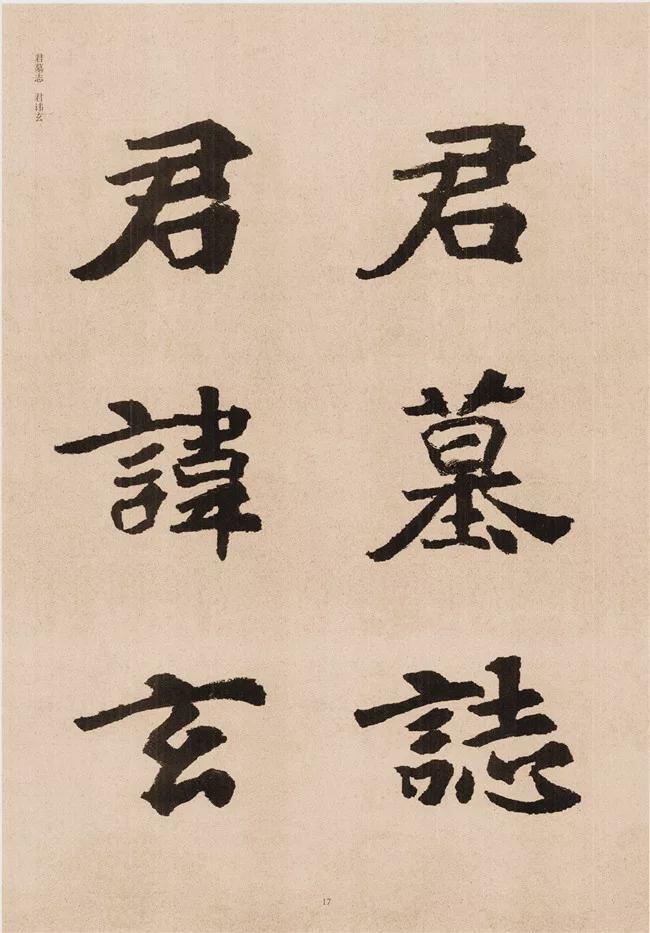 君墓誌
君諱玄
君墓志 君讳玄
17